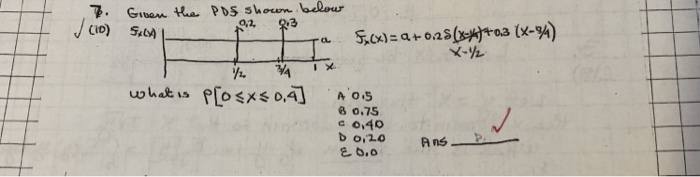 7. Given the PDS shown below
√(10) 5x(x) 0,2 0.3 a 5x(x) = a + 0.2δ(x-¼) + 0.3 (x-3/4)
x-1/2
1/2 3/4 1 x
what is P[0≤x≤0,4] A 0.5
B 0,75
C 0,40
D 0,20 Ans
E 0,0